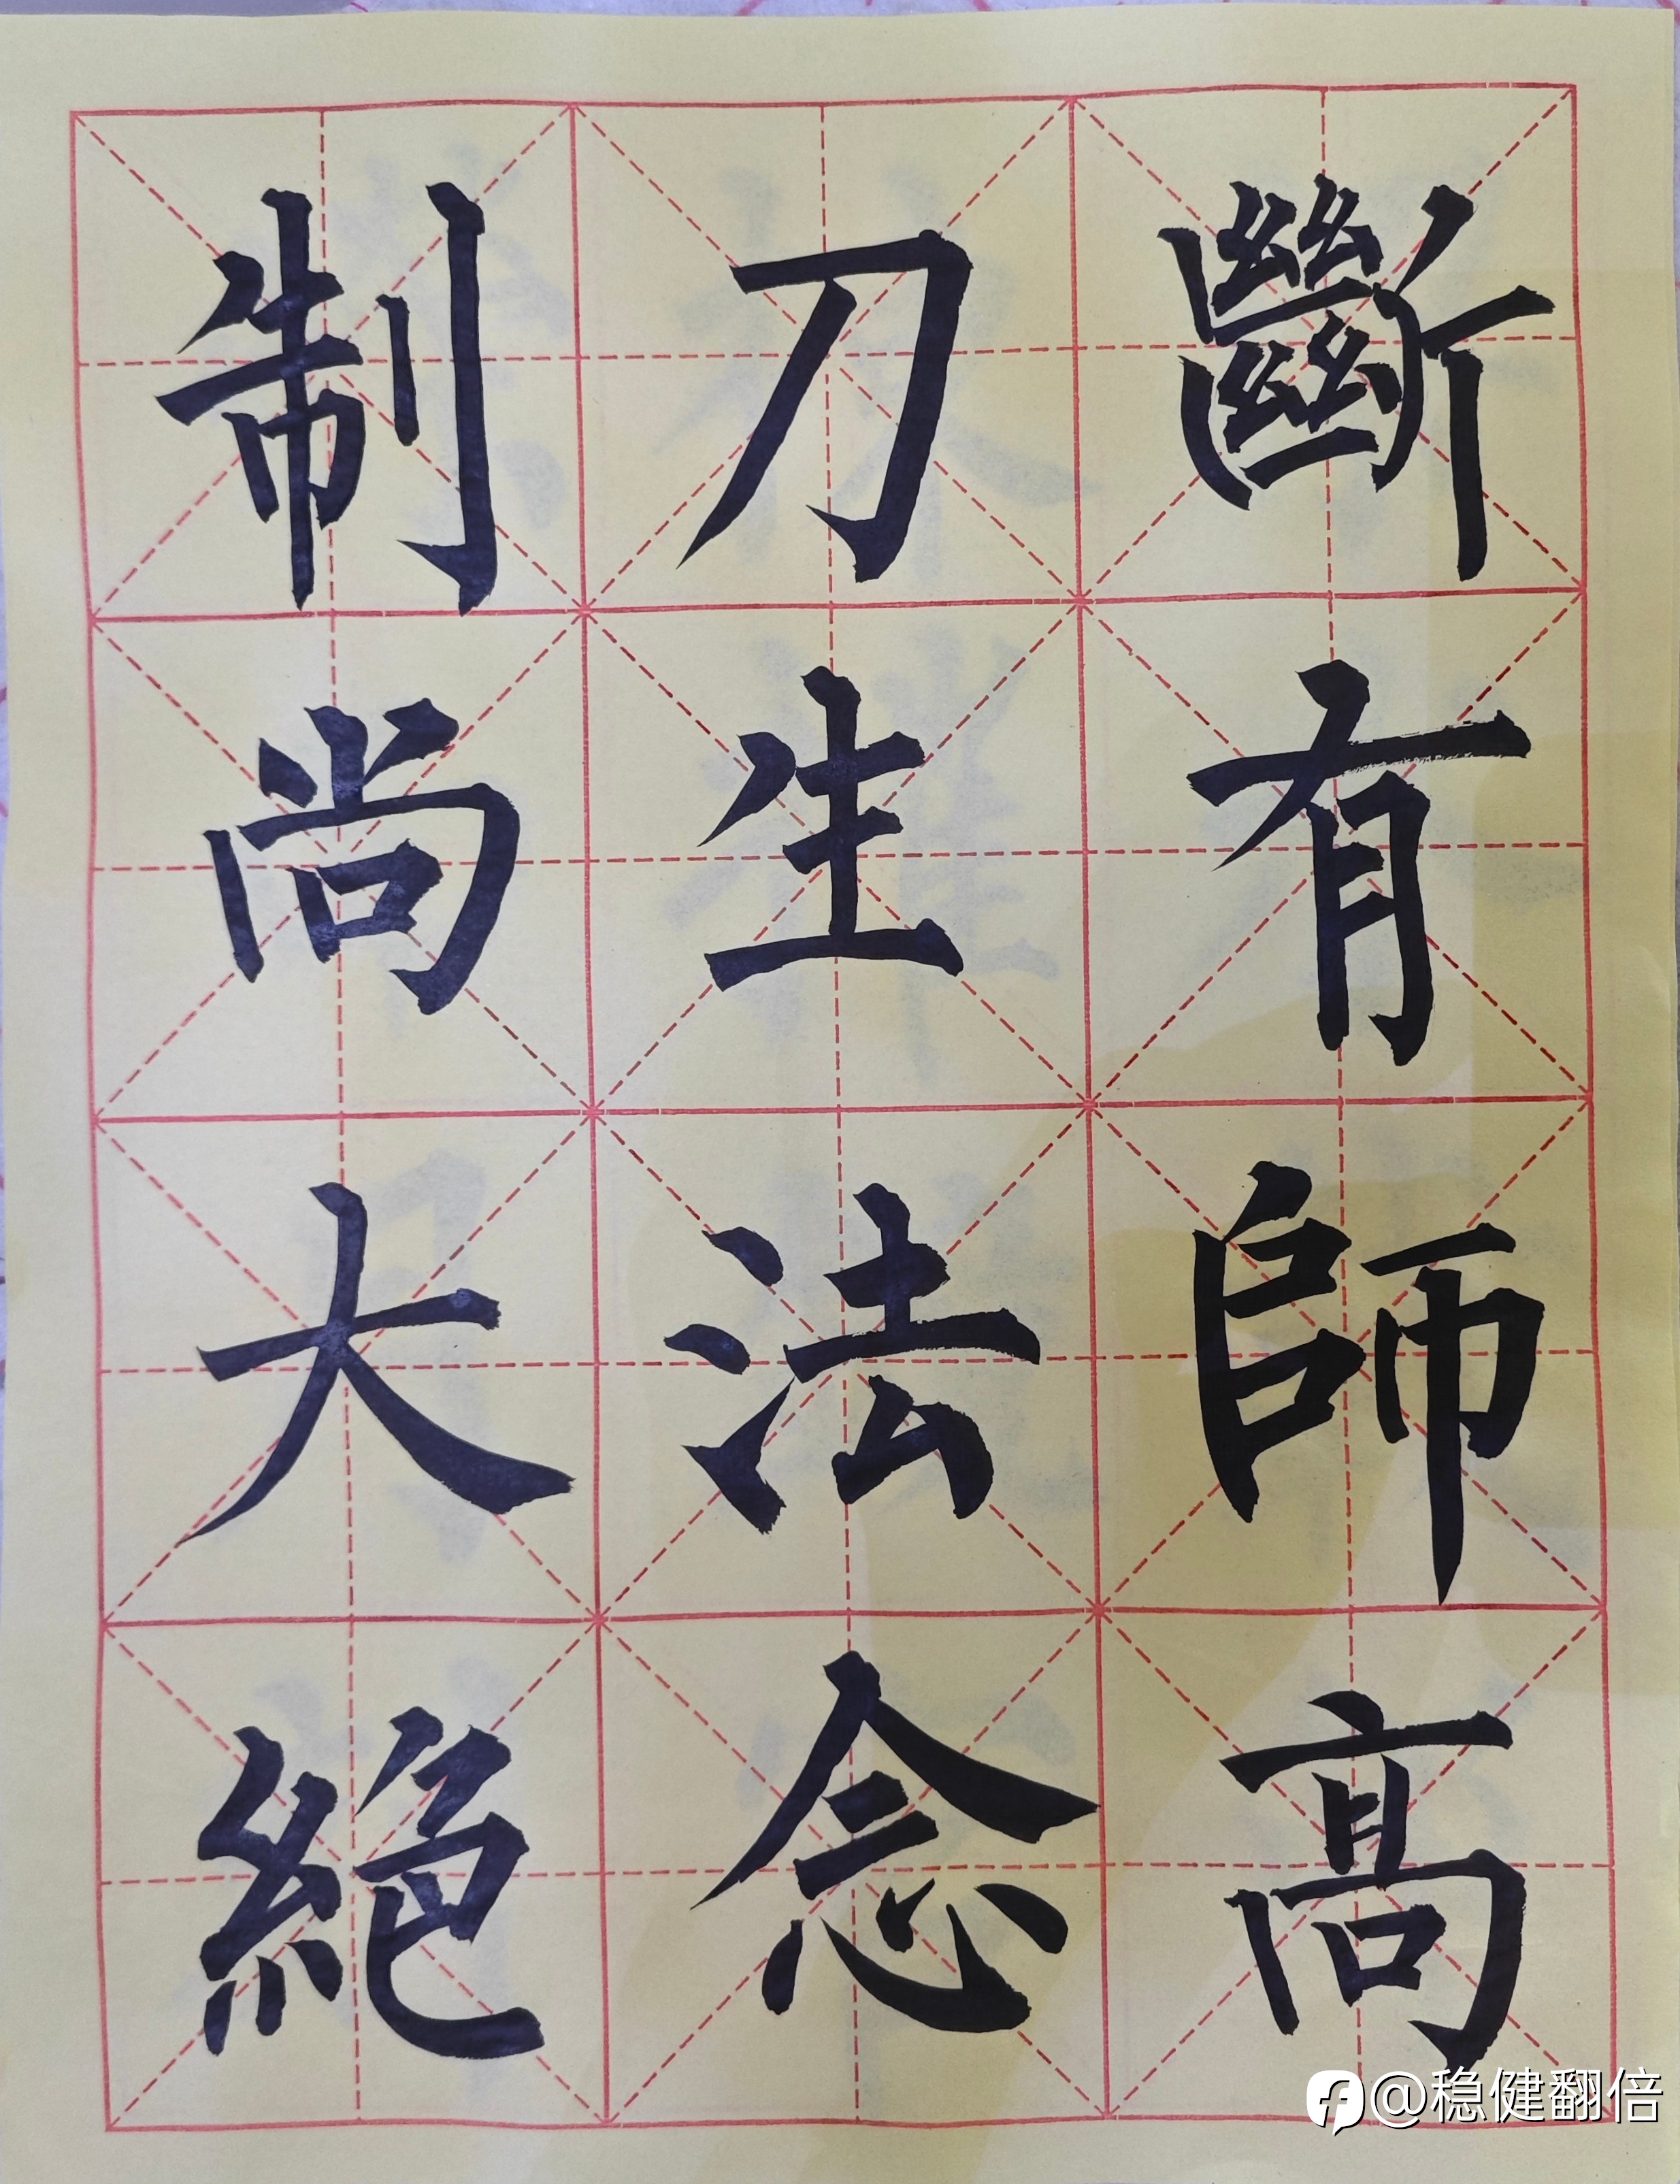 斷有師高
刀生法念
制尚大絕
@稳健翻倍